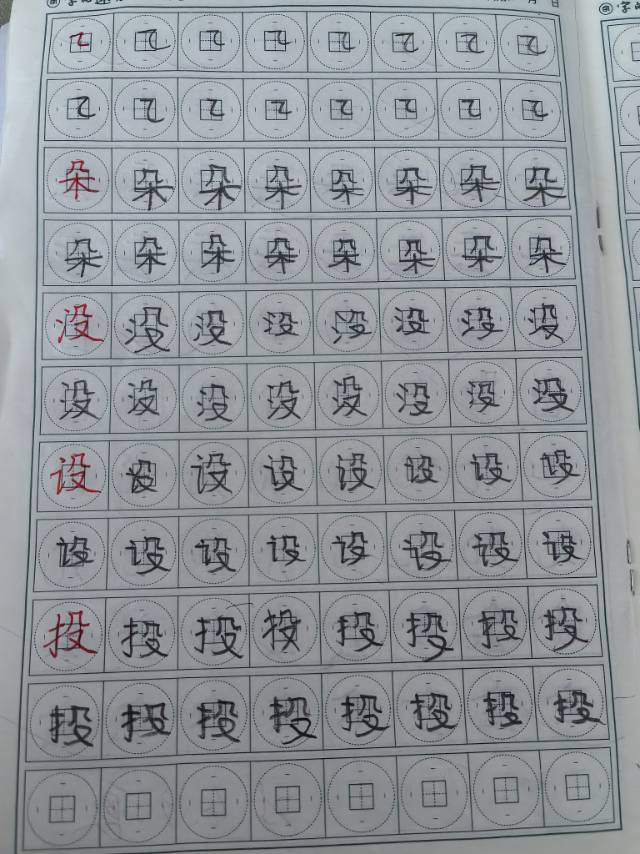 朵 朵 朵 朵 朵 朵 朵 朵
朵 朵 朵 朵 朵 朵 朵 朵
没 没 没 没 没 没 没 没
没 没 没 没 没 没 没 没
设 设 设 设 设 设 设 设
设 设 设 设 设 设 设 设
投 投 投 投 投 投 投 投
投 投 投 投 投 投 投 投